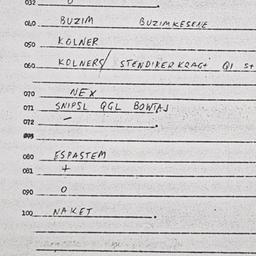 032 0
040 BUZIM BUZIMKESENE
050 KOLNER
060 KOLNERS/ STENDIKERKRAGT QI St
070 NEX
071 SNIPSL QGL BOWTAJ
072 -
080 ESPASTEM
081 +
090 0
100 NAKET